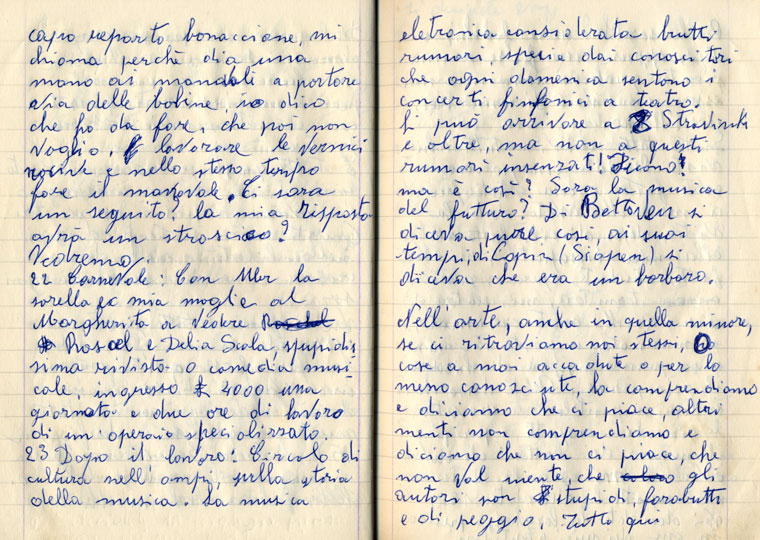 capo reparto bonaccione, mi
chiama perchè dia una
mano ai manovali a portare
via delle bobine, io dico
che ho da fare, che poi non
voglio, lavorare le vernici
nocive e nello stesso tempo
fare il manovale. Ci sarà
un seguito? la mia risposta
avrà un strascico?
Vedremo.
22 Carnevale: Con Mer la
sorella ec mia moglie al
Margherita a vedere
Rascel e Delia Scala, stupidis
sima rivista o comedia musi
cale, ingresso £ 4000 una
giornata e due ore di lavoro
di un operaio specializzato.
23 Dopo il lavoro: Circolo di
cultura nell'ampi, sulla storia
della musica. La musica
eletronica considerata brutti
rumori, specie dai conoscitori
che ogni domenica sentono i
concerti sinfonici a teatro.
Si può arrivare a Stravinski
e oltre, ma non a questi
rumori insenzati! Dicono!
ma è così? Sarà la musica
del futturo? Di Bettoven si
diceva pure così, ai suoi
tempi, di Copin (Sciopen) si
diceva che era un barbaro.
Nell'arte, anche in quella minore,
se ci ritroviamo noi stessi, o
cose a noi accadute o per lo
meno conosciute, la comprendiamo
e diciamo che ci piace, altri
menti non comprendiamo e
diciamo che non ci piace, che
non val niente, che gli
autori son stupidi, farabutti
e di peggio. Tutto qui